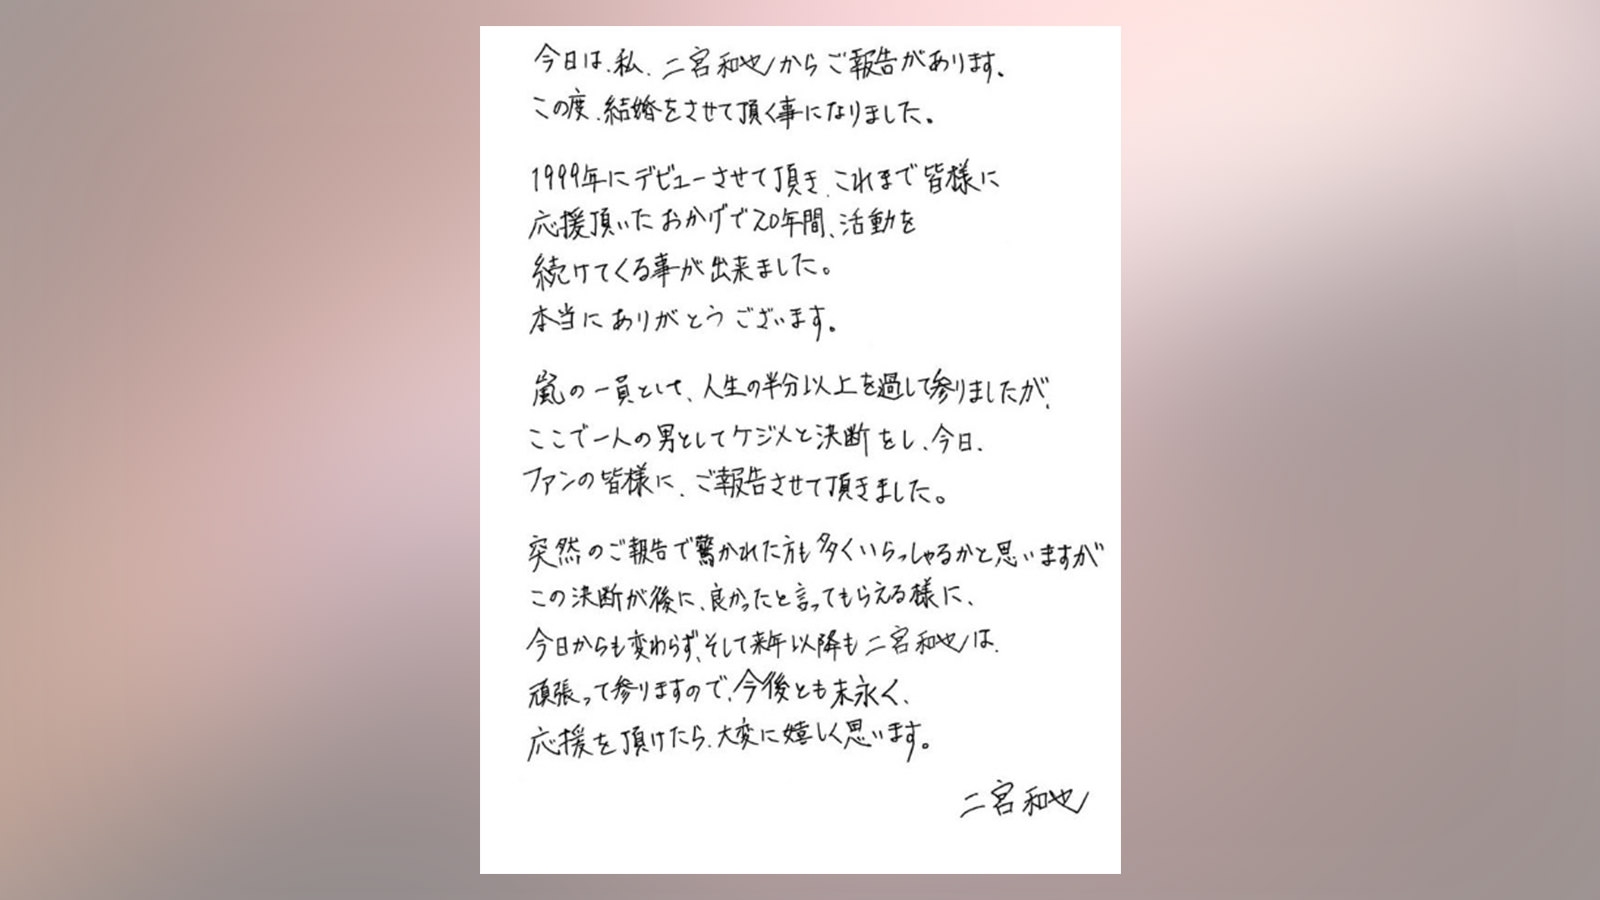 今日は、私、二宮和也からご報告があります。
この度、結婚をさせて頂く事になりました。
1999年にデビューさせて頂き、これまで皆様に
応援頂いたおかげで20年間、活動を
続けてくる事が出来ました。
本当にありがとうございます。
嵐の一員として、人生の半分以上を過して参りましたが、
ここで一人の男としてケジメと決断をし、今日、
ファンの皆様に、ご報告させて頂きました。
突然のご報告で驚かれた方も多くいらっしゃるかと思いますが
この決断が後に、良かったと言ってもらえる様に、
今日からも変わらず、そして来年以降も二宮和也は、
頑張って参りますので、今後とも末永く、
応援を頂けたら、大変に嬉しく思います。
二宮和也